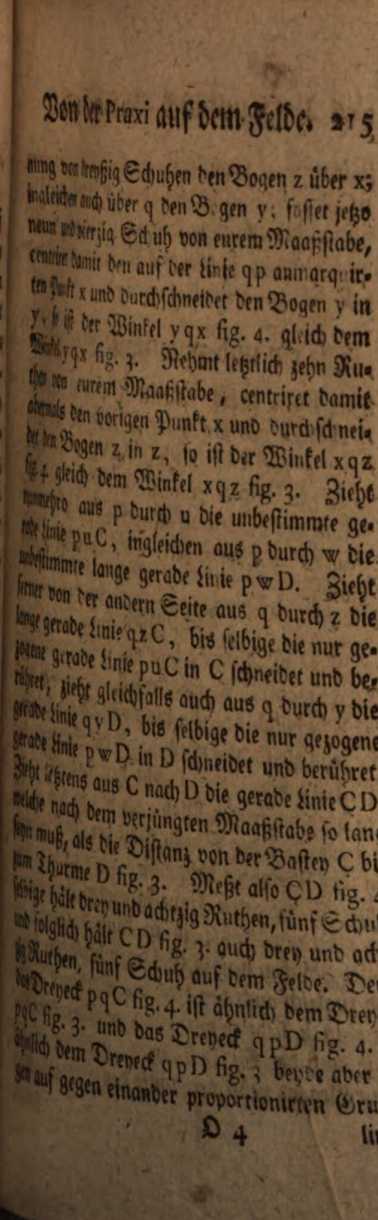 Von der Praxi auf dem Felde. 215
nung von dreyßig Schuhen den Bogen z über x;
ingleichen auch über q den Bogen y; fasset jetzo
neun und vierzig Schuh von eurem Maaßstabe,
centriret damit den auf der Linie qp anmarquir-
ten Punkt x und durchschneidet den Bogen y in
y, so ist der Winkel yqx fig. 4. gleich dem
Winkel yqx fig. 3. Nehmt letztlich zehn Ru-
then von eurem Maaßstabe, centriret damit
abermals den vorigen Punkt x und durchschnei-
det den Bogen z in z, so ist der Winkel xqz
fig. 4 gleich dem Winkel xqz fig. 3. Zieht
nunmehro aus p durch u die unbestimmte ge-
rade Linie puC, ingleichen aus p durch w die
unbestimmte lange gerade Linie pwD. Zieht
ferner von der andern Seite aus q durch z die
lange gerade Linie qzC, bis selbige die nur ge-
zogene gerade Linie puC in C schneidet und be-
rühret, zieht gleichfalls auch aus q durch y die
gerade Linie qyD, bis selbige die nur gezogene
gerade Linie pwD in D schneidet und berühret
Zieht letztens aus C nach D die gerade Linie CD
welche nach dem verjüngten Maaßstabe so lan
seyn muß, als die Distanz von der Bastey C bi
zum Thurme D fig. 3. Meßt also CD fig.
selbige hält drey und achtzig Ruthen, fünf Schu
und folglich hält CD fig. 3. auch drey und ach
zig Ruthen, fünf Schuh auf dem Felde. De
das Dreyeck pqC fig. 4. ist ähnlich dem Drey
pqC fig. 3. und das Dreyeck qpD fig. 4.
ähnlich dem Dreyeck qpD fig. 3 beyde aber
gen auf gegen einander proportionirten Gru
O 4 li